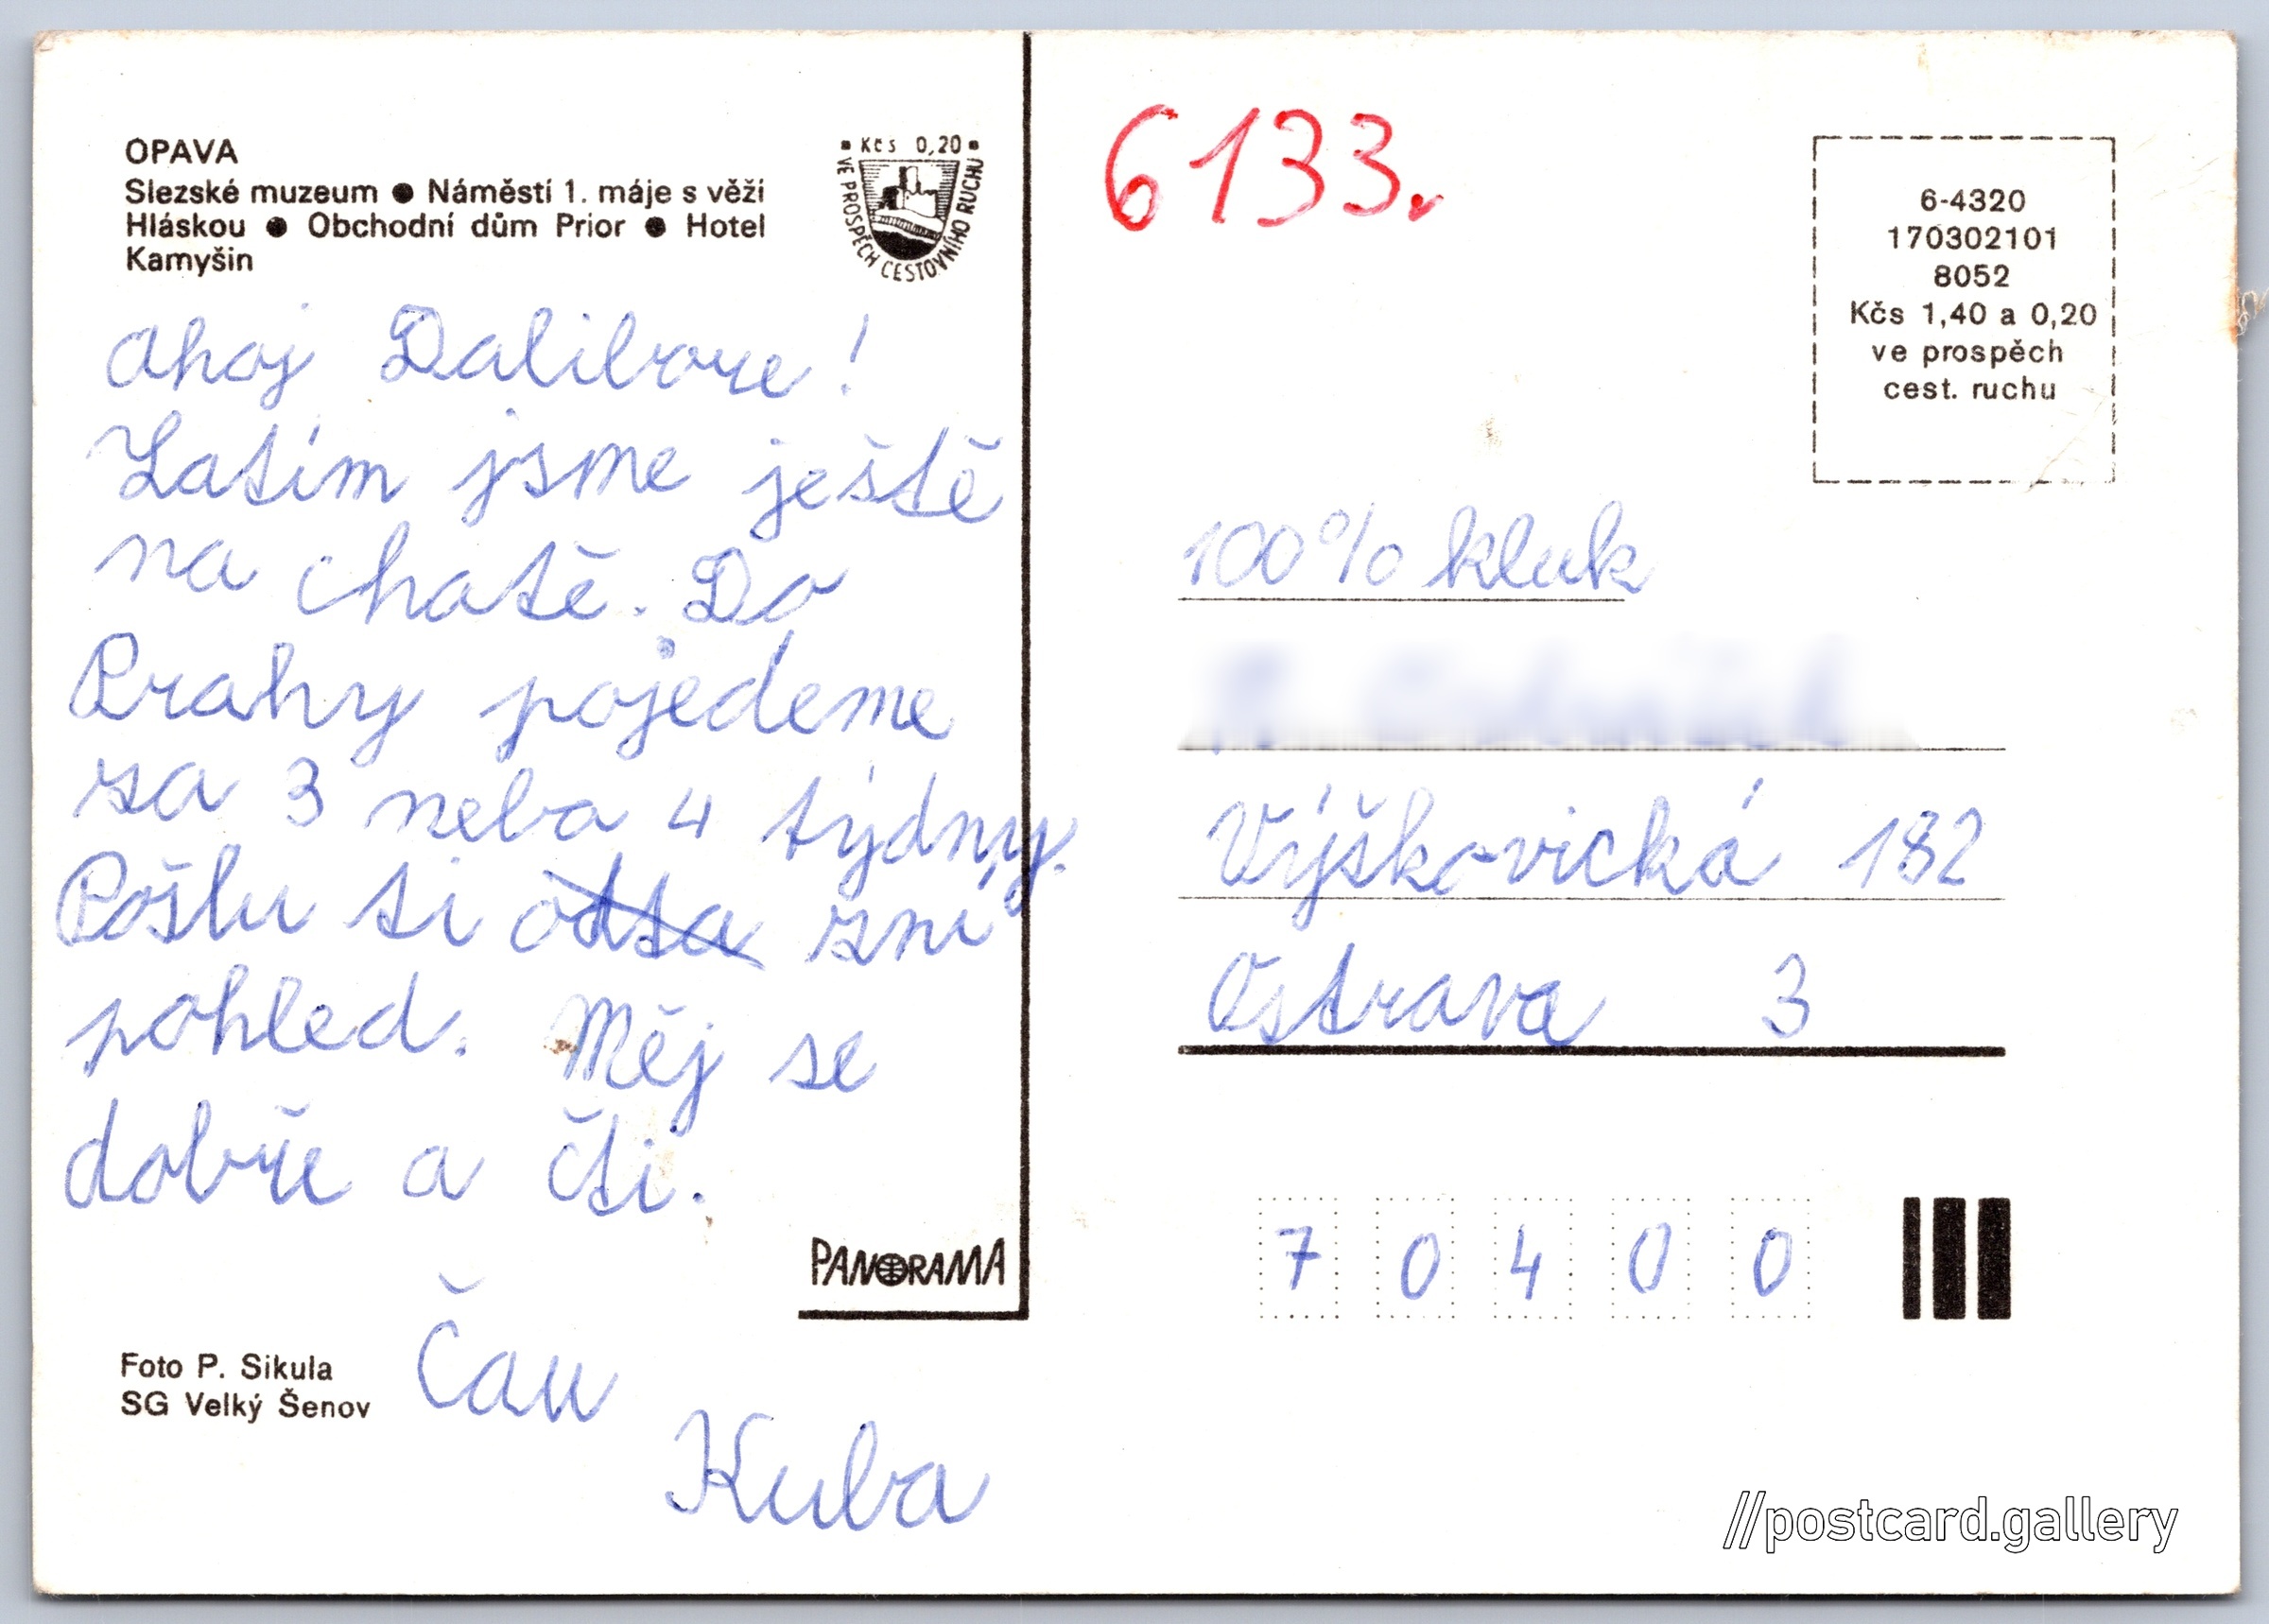 OPAVA
Slezské muzeum ● Náměstí 1. máje s věží
Hláskou ● Obchodní dům Prior ● Hotel
Kamyšin
• Kčs 0,20 •
VE PROSPĚCH CESTOVNÍHO RUCHU
Ahoj Dalibore!
Zatím jsme ještě
na chatě. Do
Prahy pojedeme
za 3 nebo 4 týdny.
Pošlu ti odta zní
pohled. Měj se
dobře a čti.
Čau
Kuba
PANORAMA
Foto P. Sikula
SG Velký Šenov
6133.
6-4320
170302101
8052
Kčs 1,40 a 0,20
ve prospěch
cest. ruchu
100% kluk
Výškovická 182
Ostrava 3
7 0 4 0 0
//postcard.gallery